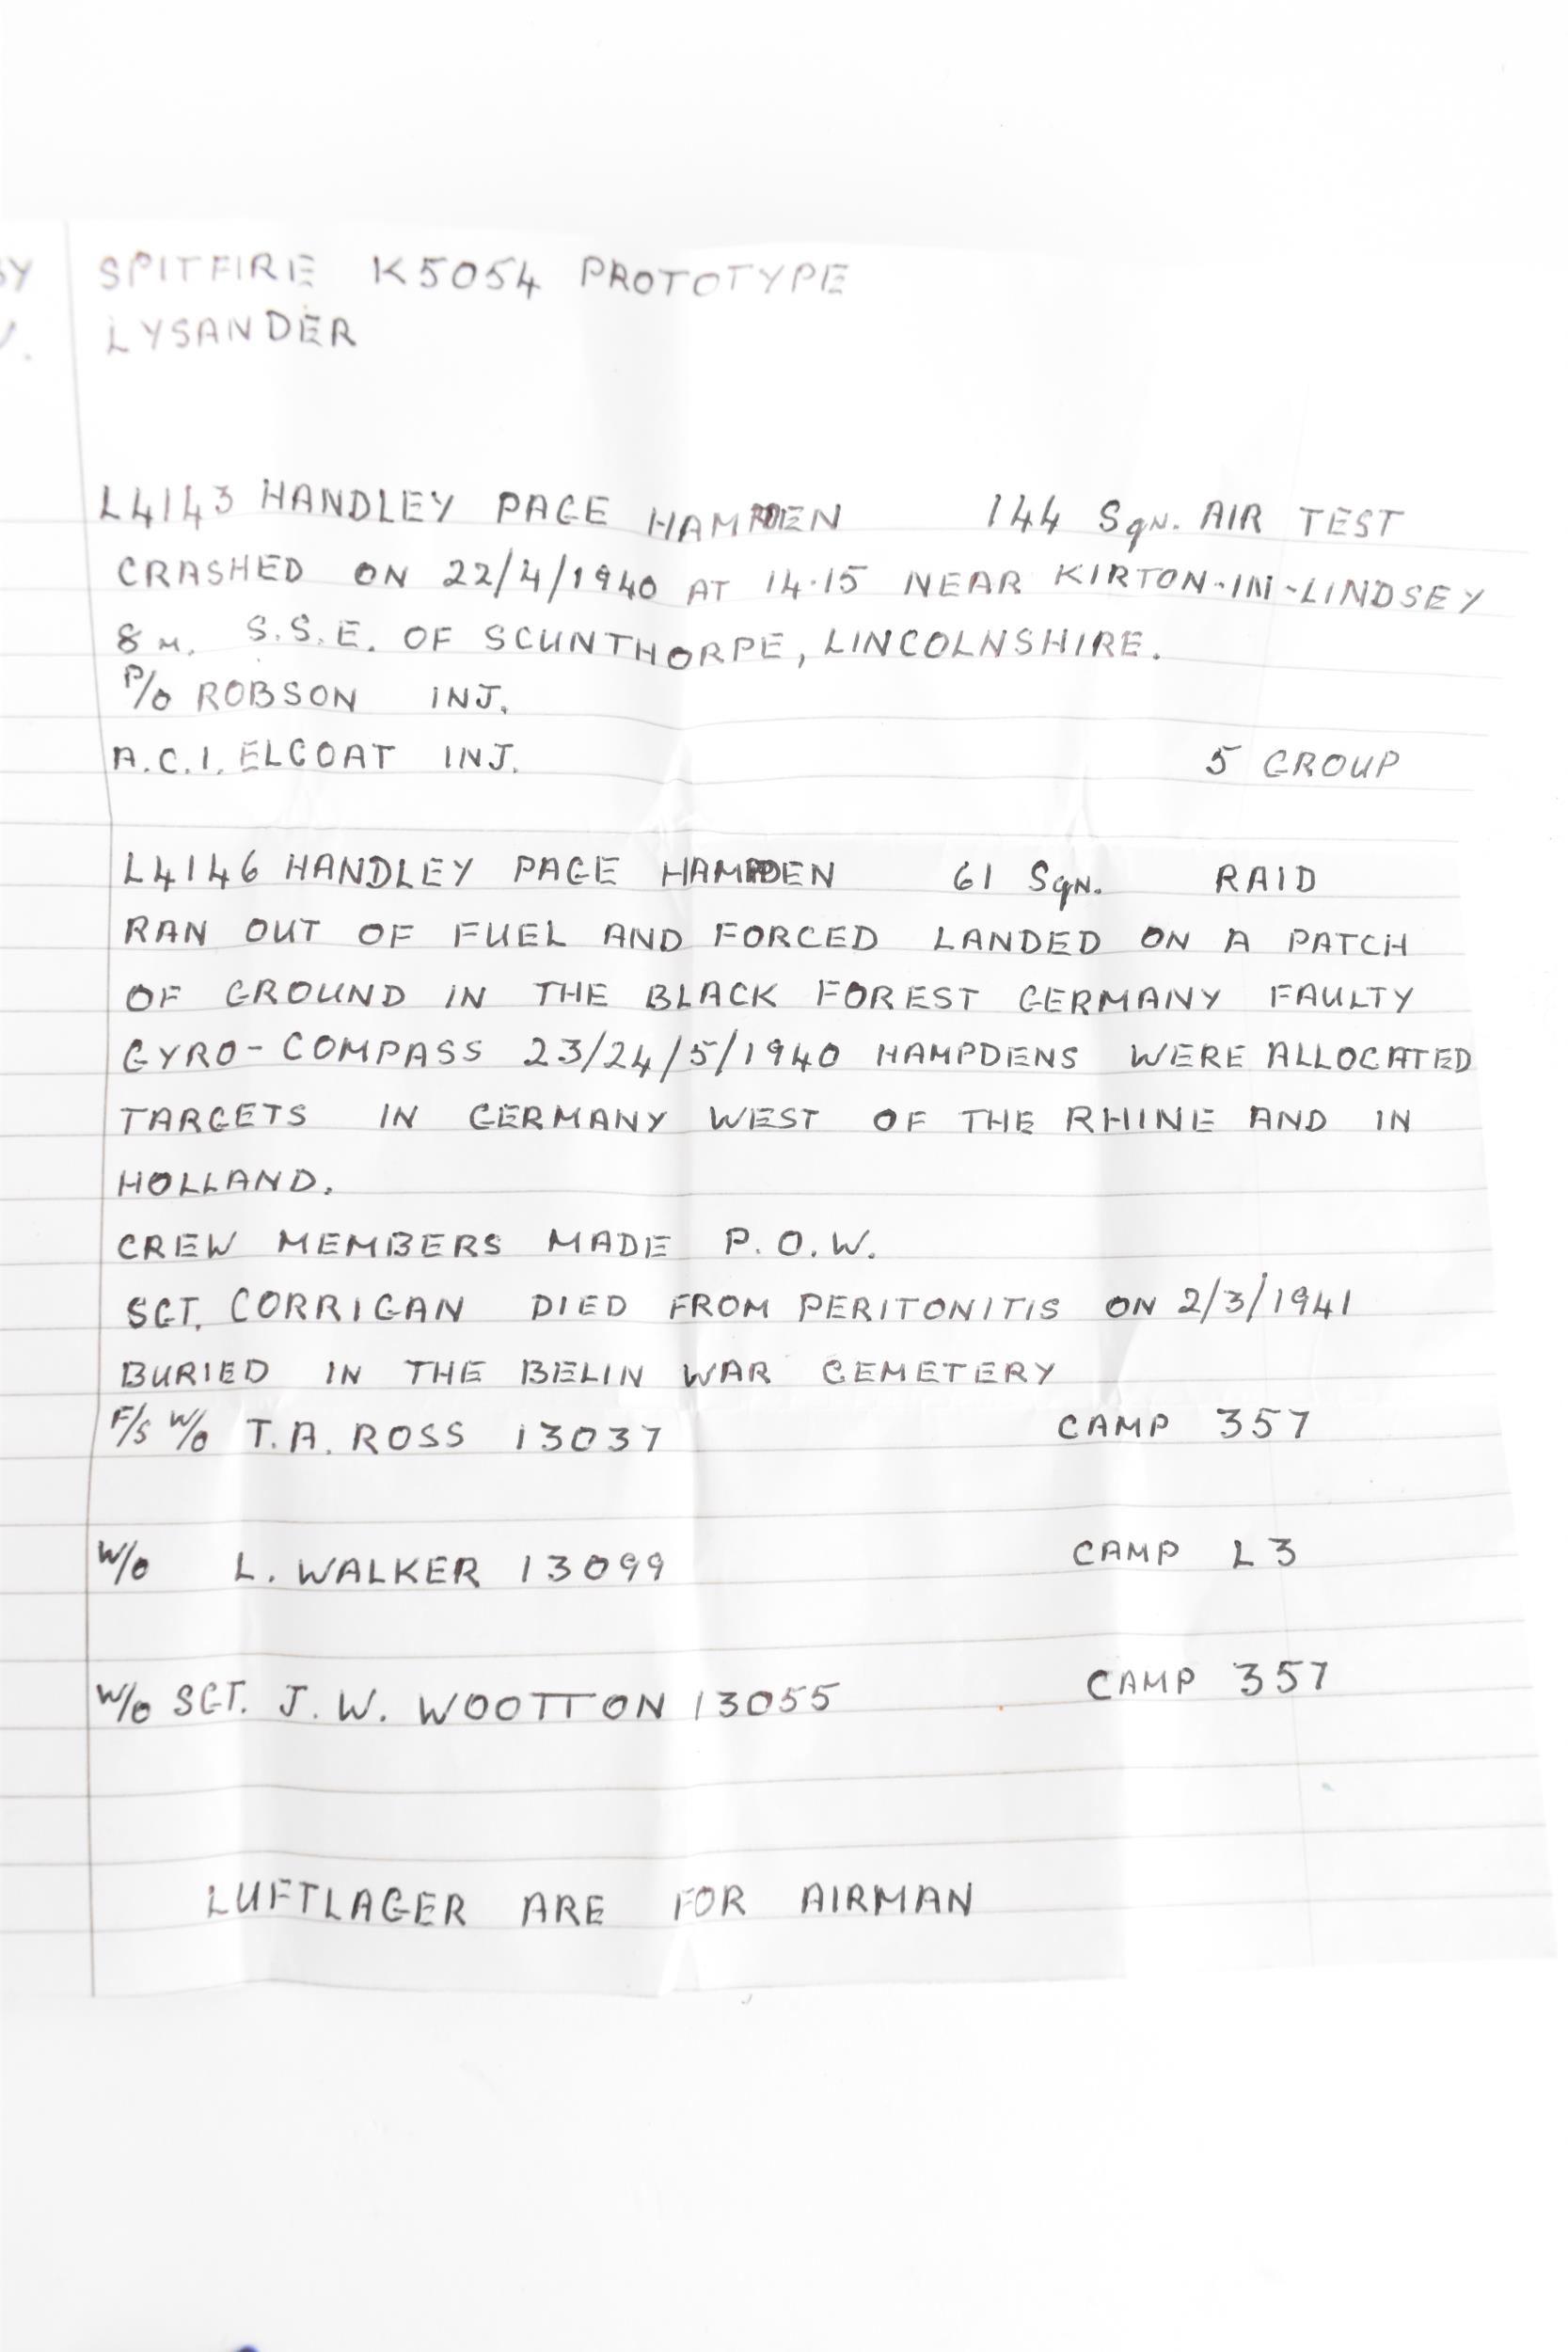 SPITFIRE K5054 PROTOTYPE
LYSANDER
L4143 HANDLEY PAGE HAMPDEN 144 SqN. AIR TEST
CRASHED ON 22/4/1940 AT 14.15 NEAR KIRTON-IN-LINDSEY
8 M. S.S.E. OF SCUNTHORPE, LINCOLNSHIRE.
P/O ROBSON INJ.
A.C.1. ELCOAT INJ. 5 GROUP
L4146 HANDLEY PAGE HAMPDEN 61 SqN. RAID
RAN OUT OF FUEL AND FORCED LANDED ON A PATCH
OF GROUND IN THE BLACK FOREST GERMANY FAULTY
GYRO-COMPASS 23/24/5/1940 HAMPDENS WERE ALLOCATED
TARGETS IN GERMANY WEST OF THE RHINE AND IN
HOLLAND.
CREW MEMBERS MADE P.O.W.
SGT. CORRIGAN DIED FROM PERITONITIS ON 2/3/1941
BURIED IN THE BELIN WAR CEMETERY
F/S W/O T.A. ROSS 13037 CAMP 357
W/O L. WALKER 13099 CAMP L3
W/O SGT. J.W. WOOTTON 13055 CAMP 357
LUFTLAGER ARE FOR AIRMAN